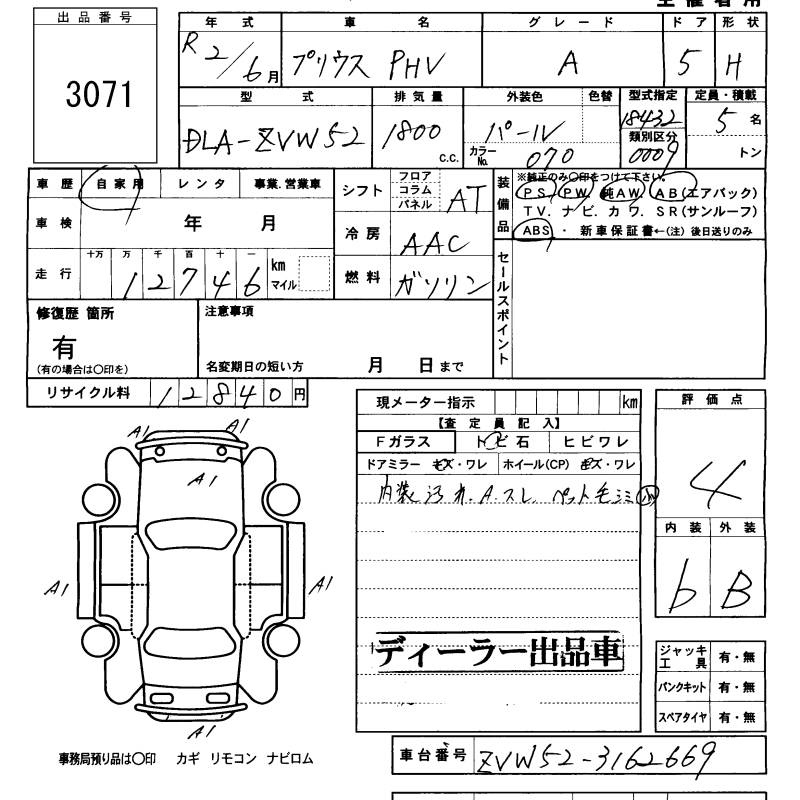 出品番号
3071
年式 車名 グレード ドア 形状
R2/6月 プリウス PHV A 5 H
型式 排気量 外装色 色替 型式指定 定員・積載
DLA-ZVW52 1800 c.c. パール 18432 5名
カラーNo. 070 類別区分 0009 トン
車歴 自家用 レンタ 事業.営業車
シフト フロア コラム パネル AT
装備品 ※純正のみ○印をつけて下さい。
PS PW 純AW AB(エアバック)
TV. ナビ. カワ. SR(サンルーフ)
ABS ・ 新車保証書←(注) 後日送りのみ
車検 年 月
冷房 AAC
走行 十万 万 千 百 十 一
12746 km マイル
燃料 ガソリン
セールスポイント
修復歴 箇所 注意事項
有
(有の場合は○印を) 名変期日の短い方 月 日まで
リサイクル料 12840円
現メーター指示 km
評価点
4
【査定員記入】
Fガラス トビ石 ヒビワレ
ドアミラー キズ・ワレ ホイール(CP) キズ・ワレ
内装汚れ.A.スレ. ペット毛シミ小
内装 外装
b B
A1 A1
A1
A1 A1
A1
ディーラー出品車
ジャッキ工具 有・無
パンクキット 有・無
スペアタイヤ 有・無
事務局預り品は○印 カギ リモコン ナビロム
車台番号 ZVW52-3162669